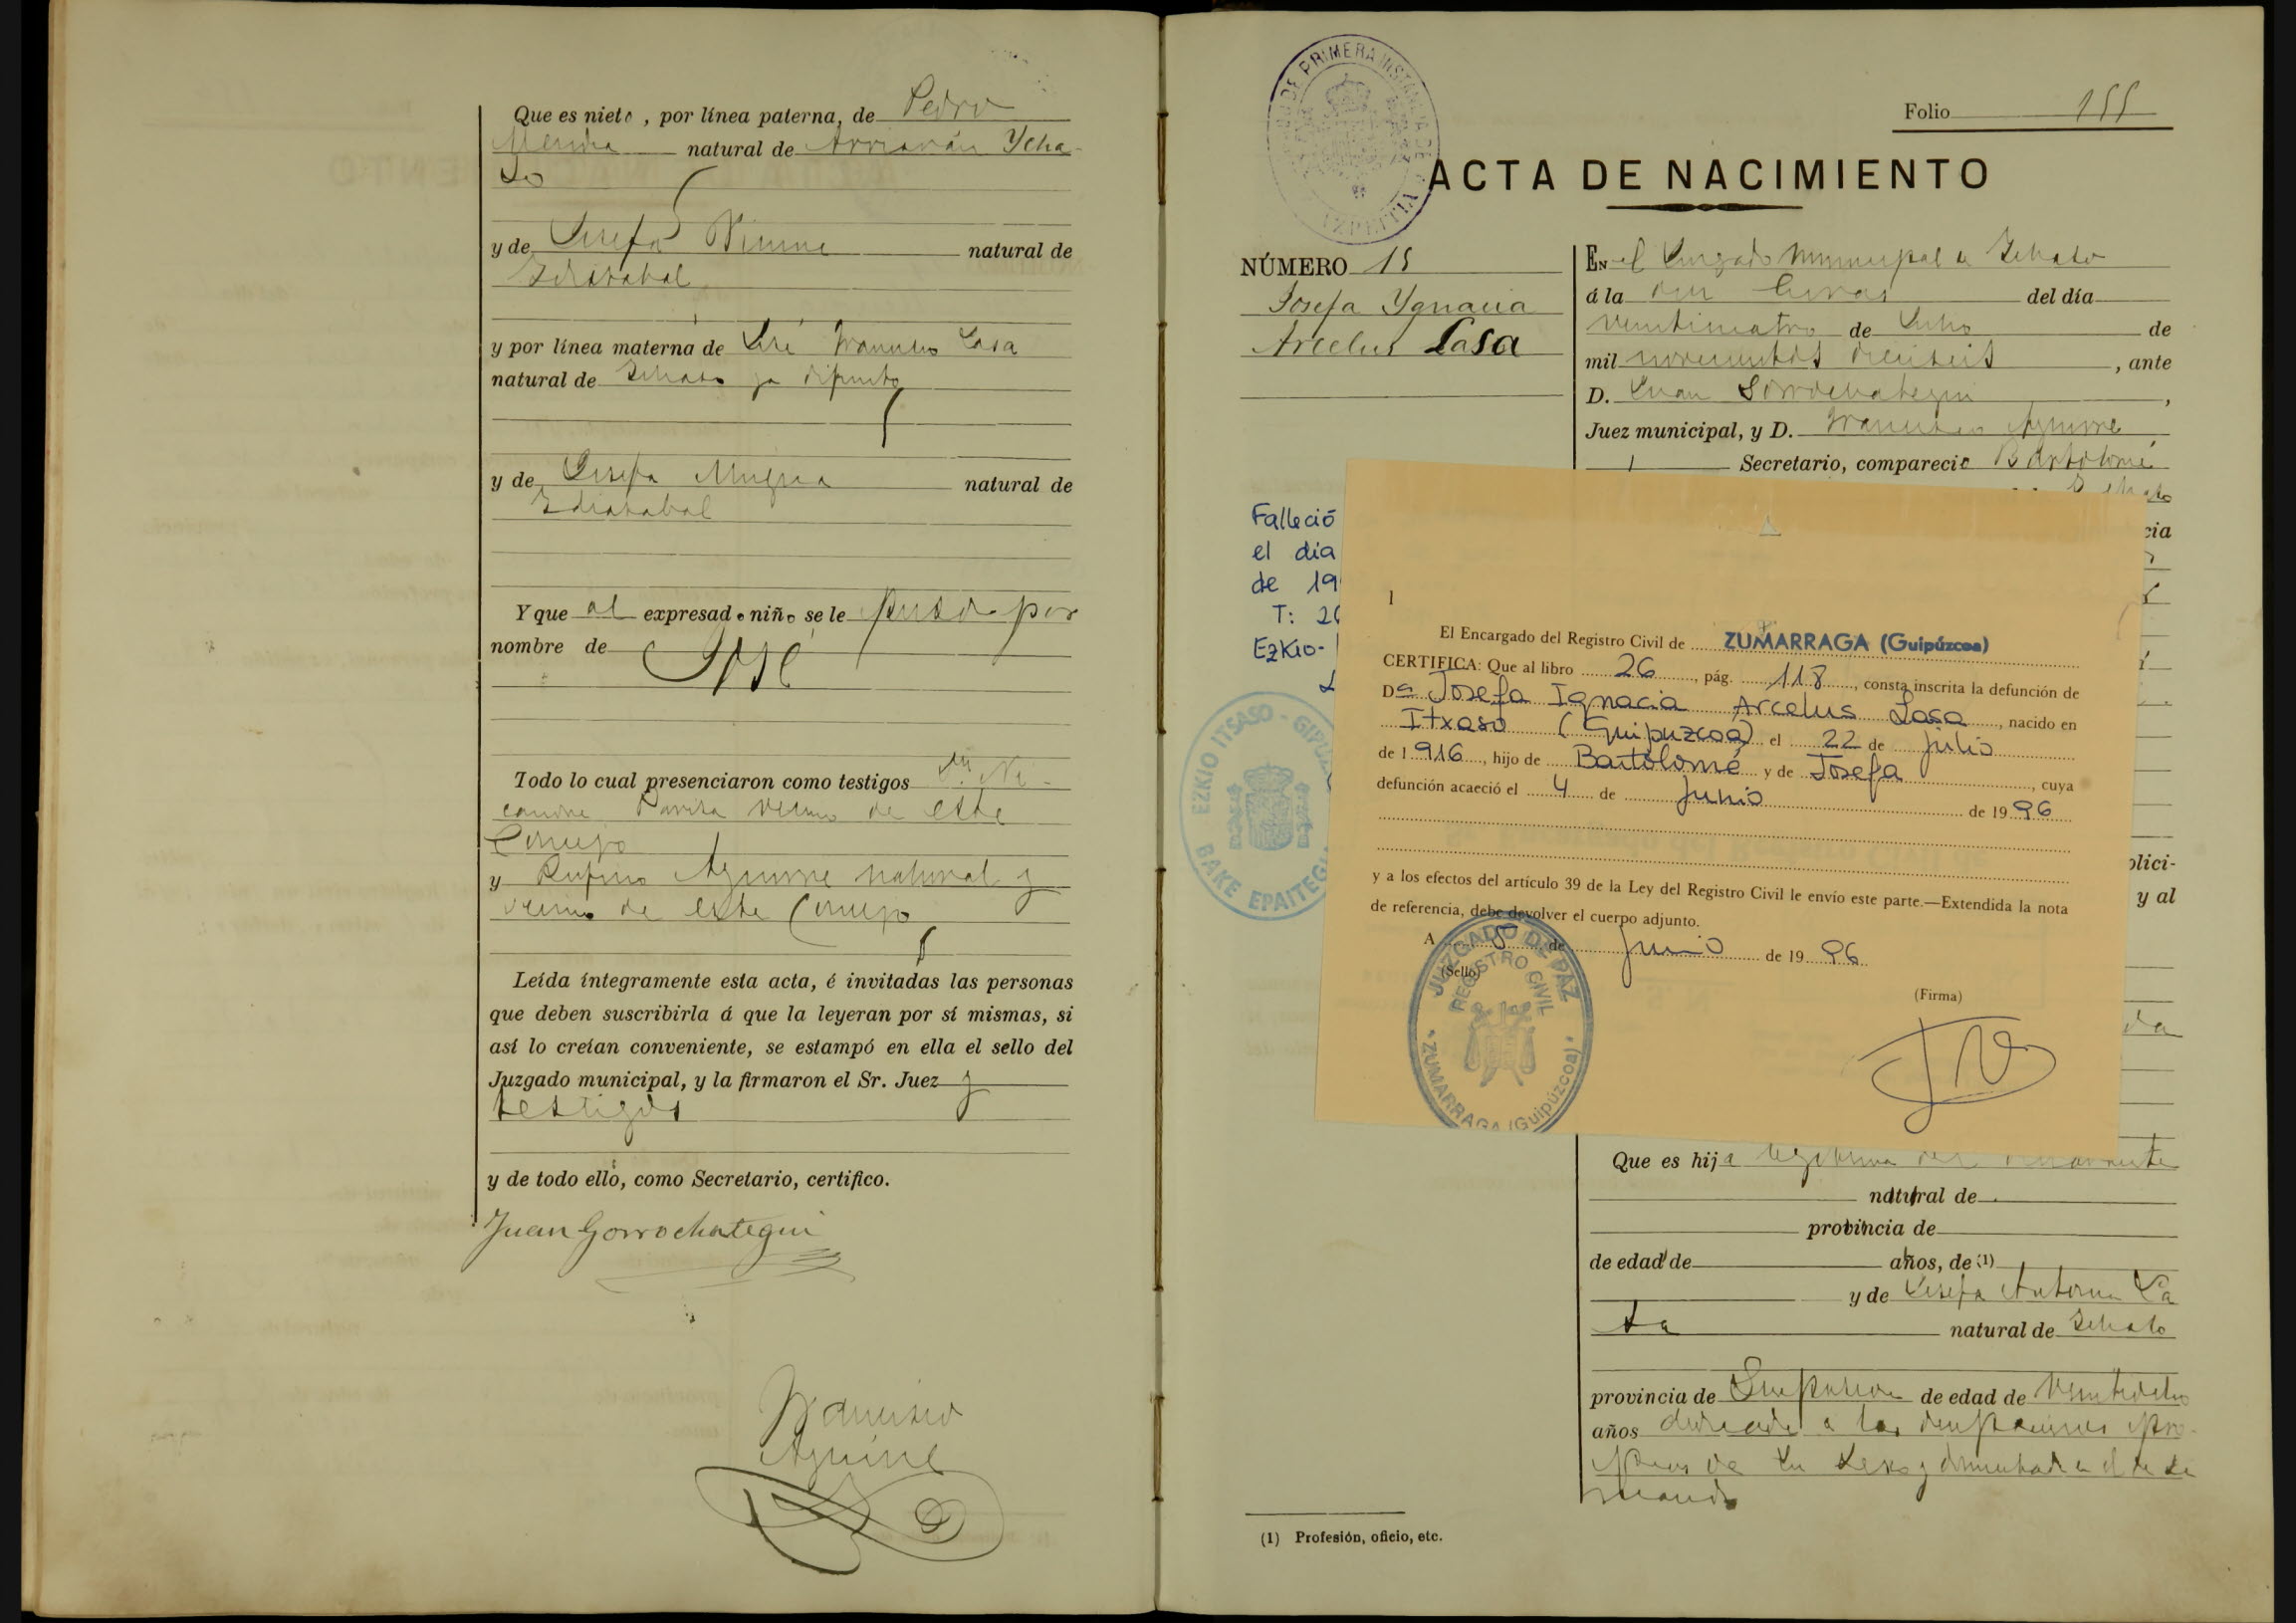 Que es nieto, por línea paterna, de Pedro
natural de Arriarán Ycha-
so
y de Josefa natural de
Idiazabal
y por línea materna de José Francisco Lasa
natural de Ichaso ya difunto
y de Josefa Mugica natural de
Idiazabal
Y que al expresado niño se le puso por
nombre de José
Todo lo cual presenciaron como testigos Dn. Ni-
candro vecino de este
Concejo
y Rufino Aguirre natural y
vecino de este Concejo
Leída íntegramente esta acta, é invitadas las personas
que deben suscribirla á que la leyeran por sí mismas, si
así lo creían conveniente, se estampó en ella el sello del
Juzgado municipal, y la firmaron el Sr. Juez y
testigos
y de todo ello, como Secretario, certifico.
Juan Gorrochategui
Francisco
Aguirre
DE PRIMERA INSTANCIA DE
AZPEITIA
Folio 155
ACTA DE NACIMIENTO
NÚMERO 15
Josefa Ygnacia
Arcelus Lasa
EN el Juzgado municipal de Ichaso
á la diez horas del día
veinticuatro de Julio de
mil novecientos dieciseis, ante
D. Juan Gorrochategui,
Juez municipal, y D. Francisco Aguirre,
Secretario, compareció Bartolomé
Ichaso
cia
Falleció
el dia
de 19
T: 26
Ezkio-
EZKIO ITSASO - GIPUZ
BAKE EPAITEGI
1
El Encargado del Registro Civil de ZUMARRAGA (Guipúzcoa)
CERTIFICA: Que al libro 26, pág. 118, consta inscrita la defunción de
Dª Josefa Ignacia Arcelus Lasa, nacido en
Itxaso (Guipuzcoa) el 22 de julio
de 1916, hijo de Bartolomé y de Josefa, cuya
defunción acaeció el 4 de junio de 1996
y a los efectos del artículo 39 de la Ley del Registro Civil le envío este parte.—Extendida la nota
de referencia, debe devolver el cuerpo adjunto.
A 5 de junio de 1996
(Sello)
(Firma)
JUZGADO DE PAZ
REGISTRO CIVIL
ZUMARRAGA (Guipúzcoa)
olici-
y al
da
Que es hija legitima del declarante
natural de
provincia de
de edad de años, de (1)
y de Josefa Antonia La
sa natural de Ichaso
provincia de Guipuzcoa de edad de veintiocho
años dedicada a las ocupaciones pro-
pias de su sexo y domiciliada en el de su
marido
(1) Profesión, oficio, etc.